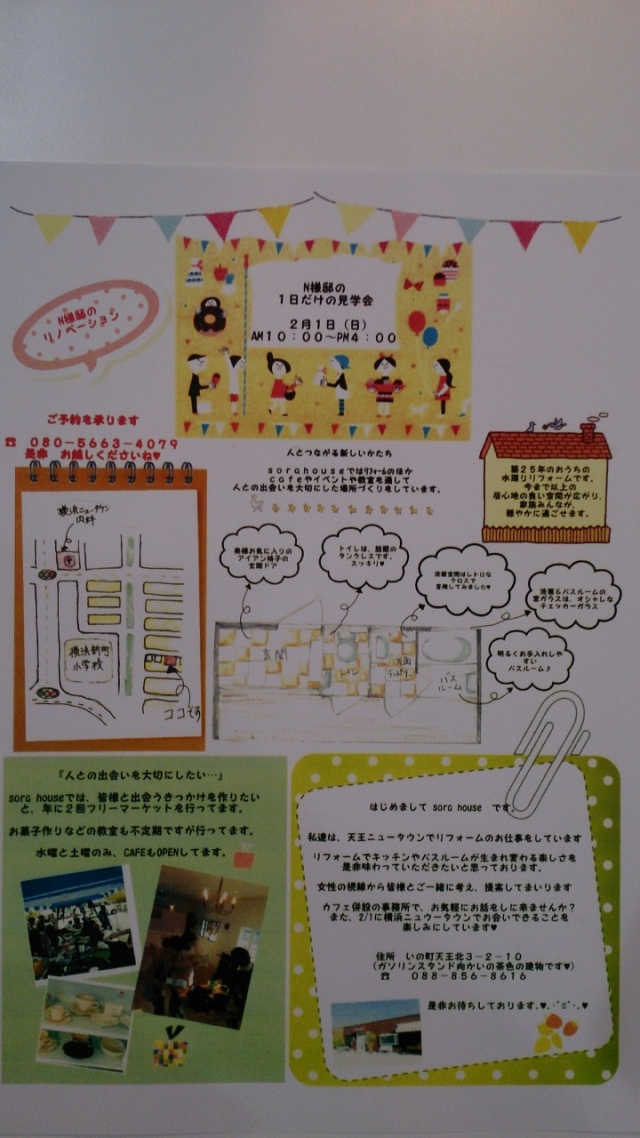 N様邸の
1日だけの見学会
2月1日（日）
AM10：00～PM4：00
N様邸の
リノベーション
ご予約を承ります
☎ 080-5663-4079
是非 お越しくださいね♥
人とつながる新しいかたち
sorahouseではリフォームのほか
cafeやイベントや教室を通して
人との出会いを大切にした場所づくりをしています。
築25年のおうちの
水廻りリフォームです。
今まで以上の
居心地の良い空間が広がり、
家族みんなが、
穏やかに過ごせます。
横浜ニュータウン
内科
横浜新町
小学校
ココです
奥様お気に入りの
アイアン格子の
玄関ドア
トイレは、話題の
タンクレスです。
スッキリ♥
洗面空間はレトロな
クロスで
冒険してみました♥
洗面&バスルームの
窓ガラスは、オシャレな
チェッカーガラス
明るくお手入れしや
すい
バスルーム♪
玄関
トイレ
洗面
バス
ルーム
「人との出会いを大切にしたい…」
sora houseでは、皆様と出会うきっかけを作りたい
と、年に2回フリーマーケットを行ってます。
お菓子作りなどの教室も不定期ですが行ってます。
水曜と土曜のみ、CAFEもOPENしてます。
はじめまして sora house です。
私達は、天王ニュータウンでリフォームのお仕事をしています
リフォームでキッチンやバスルームが生まれ変わる楽しさを
是非味わっていただきたいと思っております。
女性の視線から皆様とご一緒に考え、提案してまいります
カフェ併設の事務所で、お気軽にお話をしに来ませんか？
また、2/1に横浜ニュウータウンでお会いできることを
楽しみにしています♥
住所 いの町天王北3-2-10
（ガソリンスタンド向かいの茶色の建物です♥）
☎ 088-856-8616
是非お待ちしております。